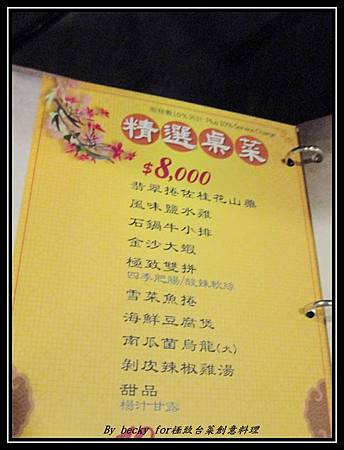 服務費10%另計 Plus 10% Service Charge
精選桌菜
$8,000
翡翠捲佐桂花山藥
風味鹽水雞
石鍋牛小排
金沙大蝦
極致雙拼
四季肥腸/酸辣軟絲
雪菜魚捲
海鮮豆腐煲
南瓜菌烏龍(大)
剝皮辣椒雞湯
甜品
楊汁甘露
By becky for極緻台菜創意料理